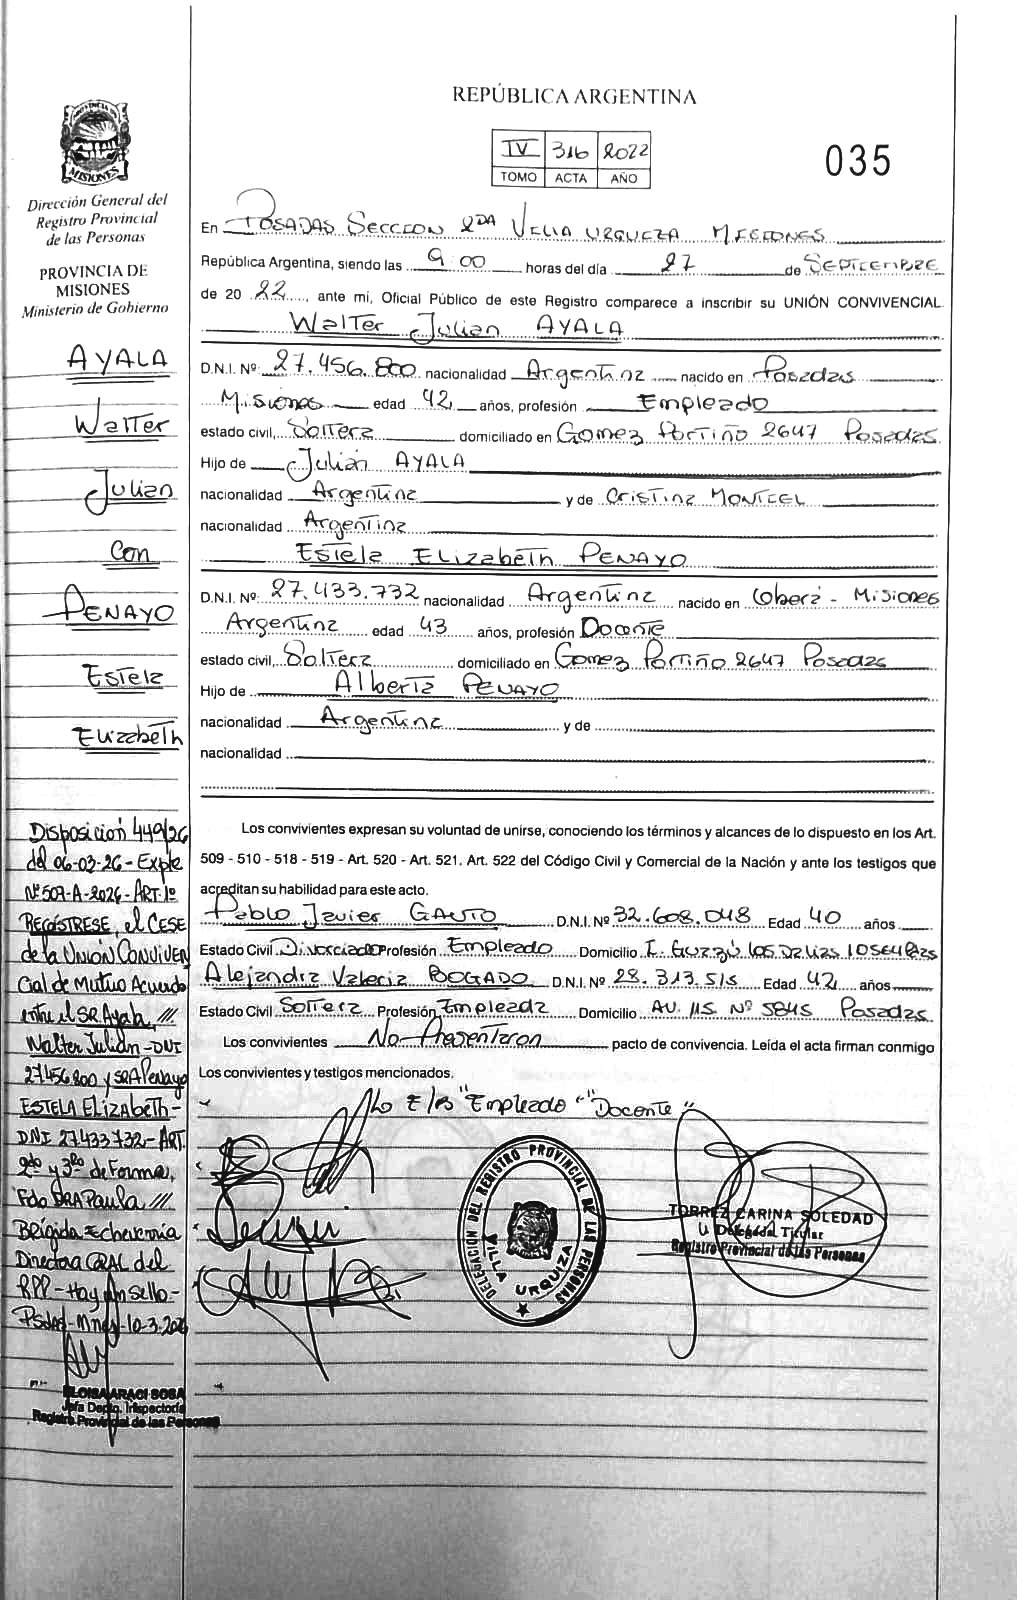 REPÚBLICA ARGENTINA
IV 316 2022
TOMO ACTA AÑO
035
PROVINCIA DE MISIONES
Dirección General del
Registro Provincial
de las Personas
PROVINCIA DE
MISIONES
Ministerio de Gobierno
AYALA
Walter
Julian
Con
PENAYO
Estela
Elizabeth
Disposición 449/26
del 06-03-26- Expte
Nº 507-A-2026- ART. 1º
REGÍSTRESE, el CESE
de la UNIÓN CONVIVEN
Cial de Mutuo Acuerdo
entre el SR Ayala, ///
Walter Julián - DNI
27456800 y SRA Penayo
ESTELA ElizABETH-
DNI 27433732- ART.
2do y 3ro de Forma,
Fdo DRA Paula ///
Brígida Echeverria
Directora GRAL del
RPP- Hay un sello-
Psdas- Mnes- 10-3-2026
ELOISA ARACI SOSA
Jefa Depto. Inspectoría
Registro Provincial de las Personas
En POSADAS SECCION 2DA VILLA URQUIZA MISIONES
República Argentina, siendo las 9:00 horas del día 27 de SEPTIEMBRE
de 20 22, ante mi, Oficial Público de este Registro comparece a inscribir su UNIÓN CONVIVENCIAL
Walter Julian AYALA
D.N.I. Nº: 27.456.800 nacionalidad Argentina nacido en Posadas
Misiones edad 42 años, profesión Empleado
estado civil, Soltera domiciliado en Gomez Portiño 2647 Posadas
Hijo de Julián AYALA
nacionalidad Argentina y de Cristina MONTIEL
nacionalidad Argentina
Estela Elizabeth PENAYO
D.N.I. Nº: 27.433.732 nacionalidad Argentina nacido en Oberá - Misiones
Argentina edad 43 años, profesión Docente
estado civil, Soltera domiciliado en Gomez Portiño 2647 Posadas
Hijo de Alberta PENAYO
nacionalidad Argentina y de
nacionalidad
Los convivientes expresan su voluntad de unirse, conociendo los términos y alcances de lo dispuesto en los Art.
509 - 510 - 518 - 519 - Art. 520 - Art. 521. Art. 522 del Código Civil y Comercial de la Nación y ante los testigos que
acreditan su habilidad para este acto.
Pablo Javier GAUTO D.N.I. Nº 32.608.048 Edad 40 años
Estado Civil Divorciado Profesión Empleado Domicilio
Alejandra Valeria BOGADO D.N.I. Nº 28.313.515 Edad 42 años
Estado Civil Soltera Profesión Empleada Domicilio AV. 115 Nº 5845 Posadas
Los convivientes No Presentaron pacto de convivencia. Leída el acta firman conmigo
Los convivientes y testigos mencionados.
E/R "Empleado" "Docente"
DELEGACIÓN DEL REGISTRO PROVINCIAL DE LAS PERSONAS
VILLA URQUIZA
TORREZ CARINA SOLEDAD
Delegada Titular
Registro Provincial de las Personas